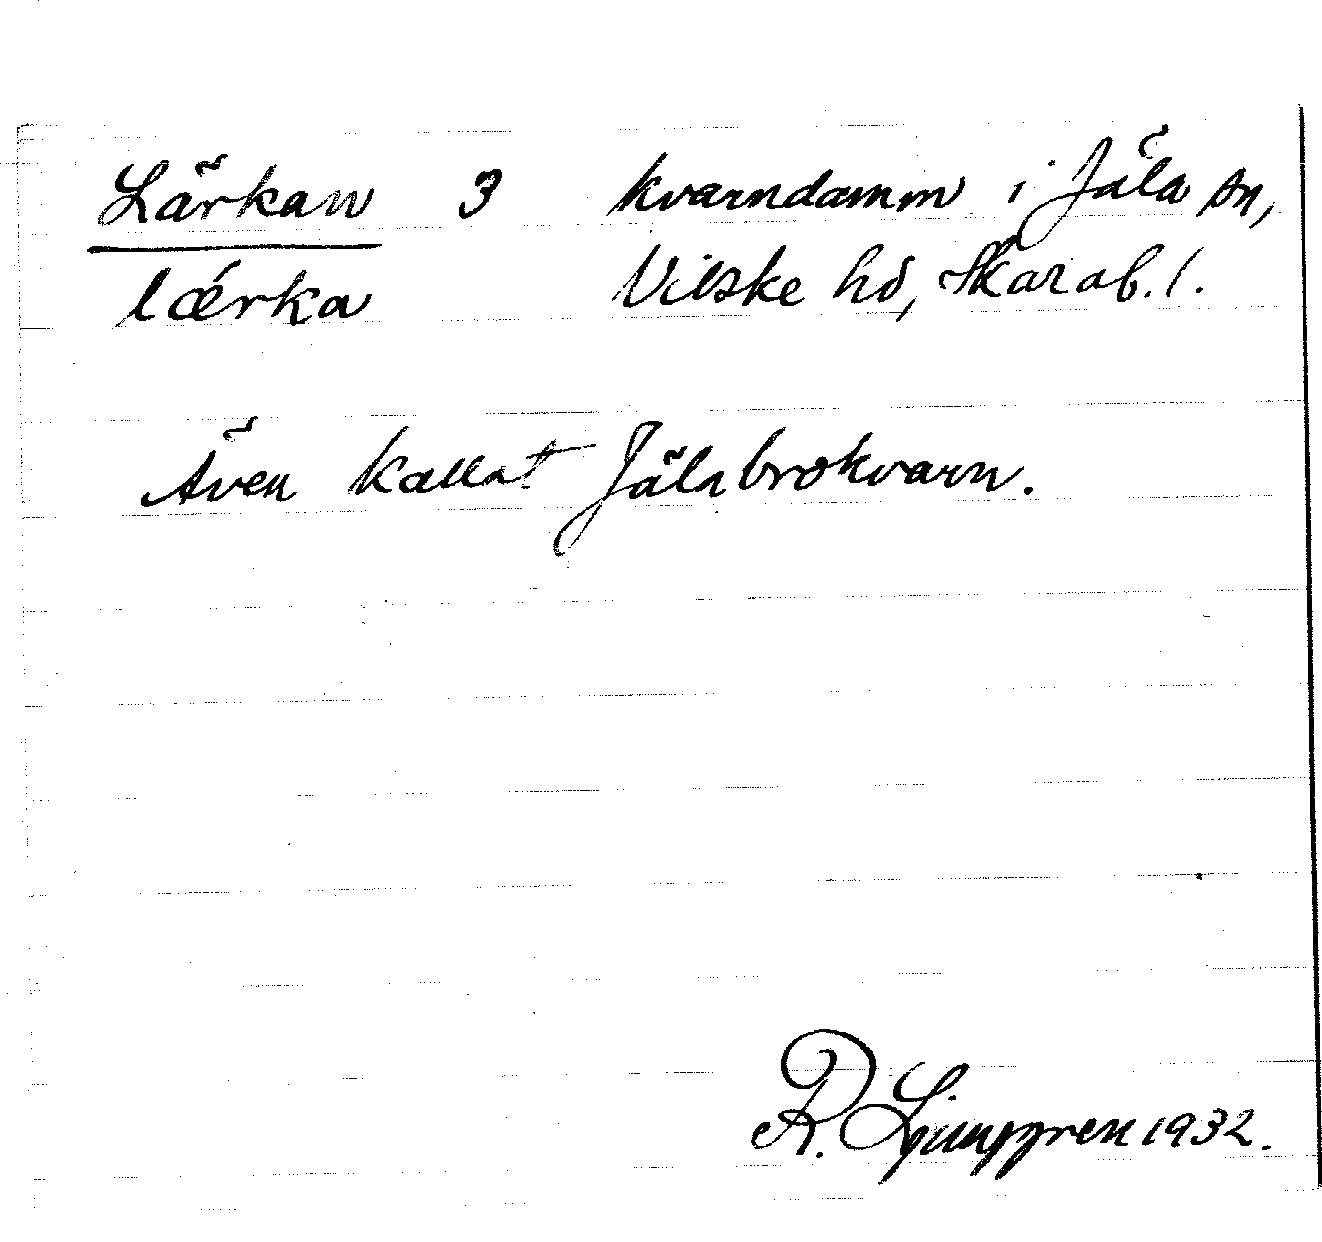 Lärkan 3 kvarndamm i Jäla sn,
lǽrka Vilske hd, Skarab. l.
Även kallat Jälabrokvarn.
R. Ljunggren 1932.